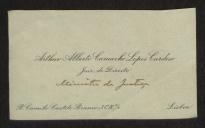 Arthur Alberto Camacho Lopes Cardoso
Juiz de Direito
Ministro da Justiça
R. Camilo Castelo Branco
Lisboa